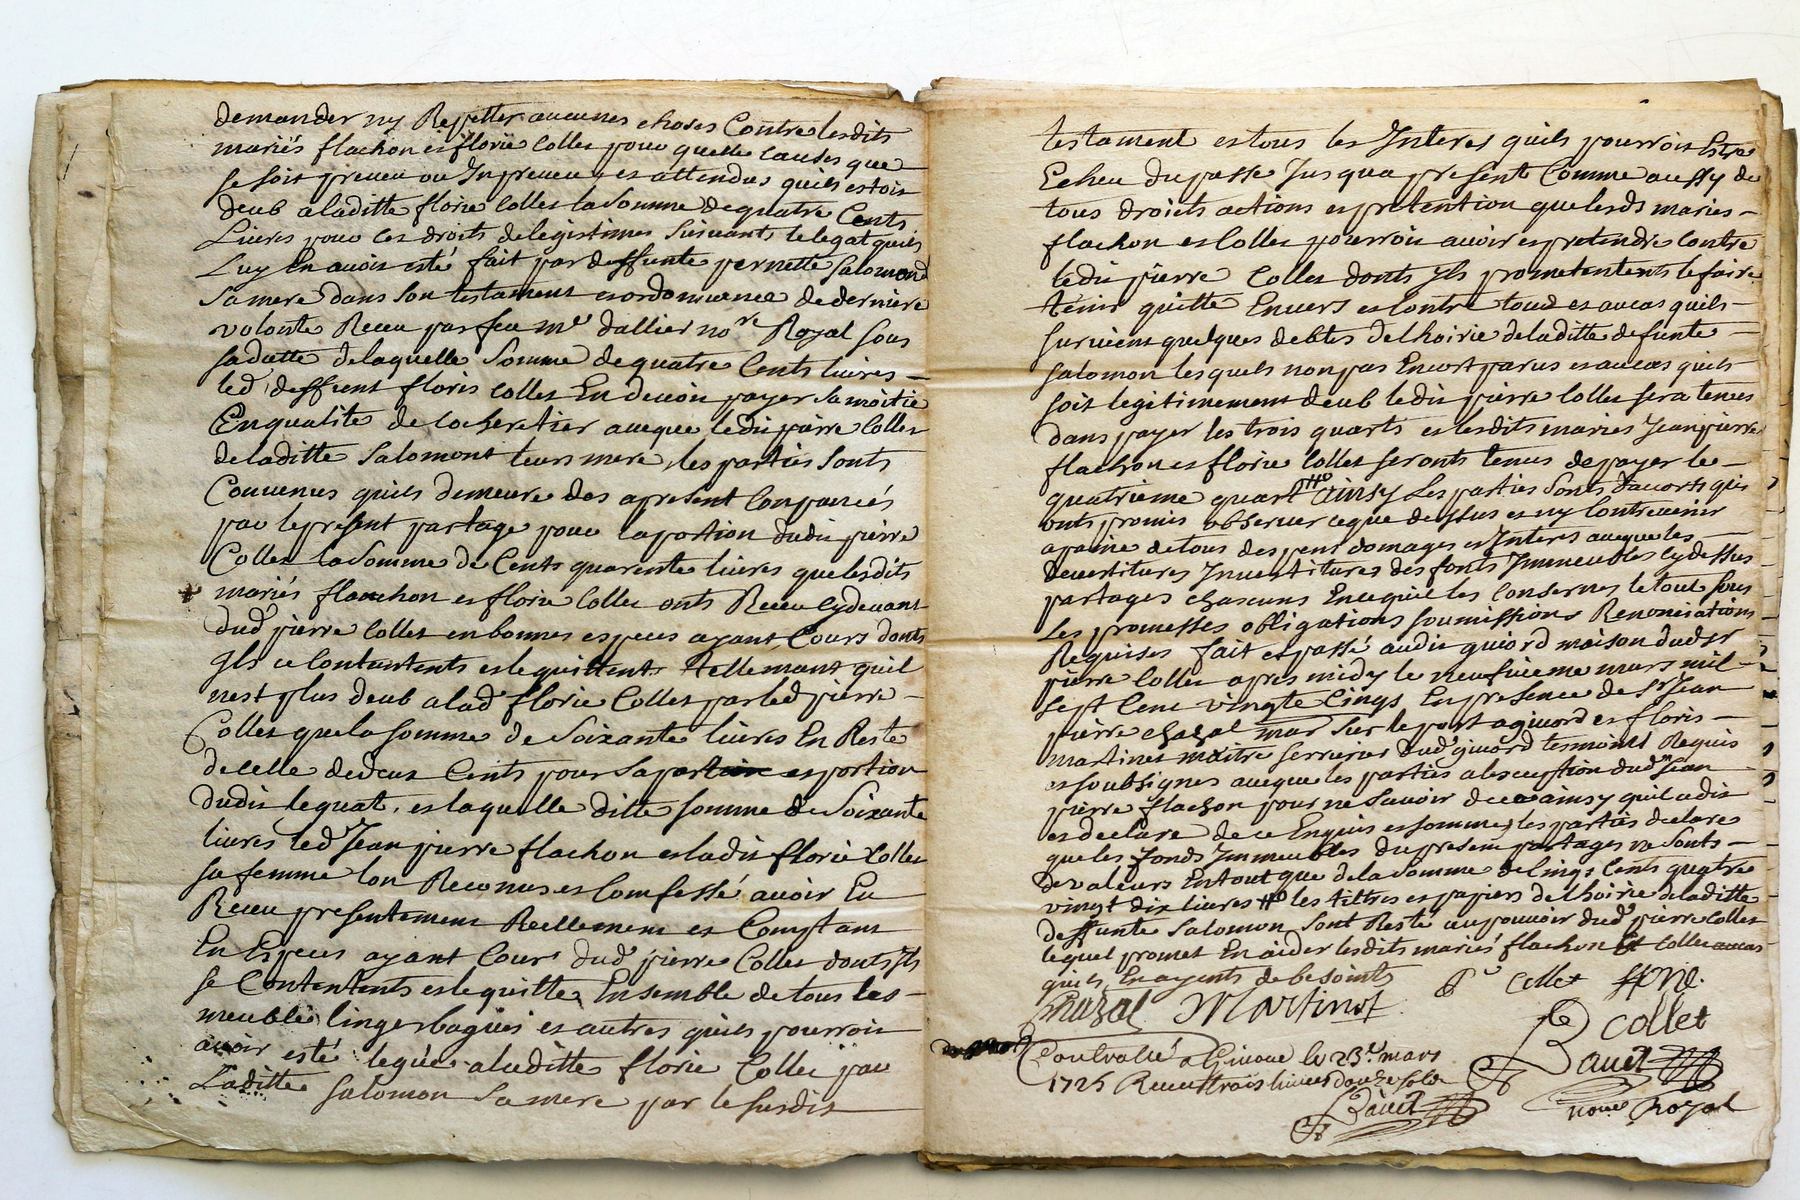 demander ny Repetter aucunes choses Contre lesdits
mariés flachon et florie Colles pour quelle causes que
se soit preveu ou Inpreveu, et attendus quils estoit
deub a laditte florie Colles la Somme de quatre Cents
Livres pour ces droits delegistimes Suivants le legat quils
Luy En avoit esté fait par deffunte pernette Salomond
Sa mere dans son testament et ordonnance de derniere
volonte Receu par feu me dallier nore Royal sous
sa datte de laquelle Somme de quatre Cents livres
led deffient floris colles En devoit payer sa moitie
En qualite de Coheretier avecque ledit pierre Colles
de laditte Salomont leurs mere, les parties Sonts
Convenues quils demeure des apresent Conpancés
par le present partage pour la portion dudit pierre
Colles la Somme de Cents quarente livres que lesdits
mariés flauchon et florie Colles onts Receu Cydevant
dud pierre Colles en bonnes especes ayant Cours donts
Ils ce Contantents et le quittents tellement quil
nest plus deub a lad florie Colles par led pierre
Colles que la somme de Soixante livres En Reste
de celle de deux Cents pour sa part et portion
dudit leguat, et laquelle ditte somme de Soixante
livres led Jean pierre flachon et ladit florie Colles
sa femme lon Reconus et Comfessé avoir Eu
Receu presentement Reellement et Comptant
En Especes ayant Cours dud pierre Colles donts Ils
se Contentents et le quitte, Ensemble de tous les
meuble linges bagues et autres quils pourroit
avoir esté legués a laditte florie Colles par
Laditte Salomon Sa mere par le susdit
testament et tous les Interes quils pourroit Estre
Echeu du passe Jusqua present Comme aussy de
tous droits actions et pretention que lesds maries
flachon et Colles pourroit avoir et pretendre Contre
ledit pierre Colles donts Ils prometentents le faire
tenir quitte Envers et Contre tous et au cas quils
survient quelques debtes de lhoirie de laditte defunte
Salomon lesquels non pas Encort parus et au cas quils
soit legitimement deub ledit pierre Colles sera tenus
dans payer les trois quarts et lesdits maries Jean pierre
flachon et florie Colles seronts tenus de payer le
quatrieme quart Ainsy Les parties Sonts dacorts quis
onts promis observer ceque dessus et ny Contrevenir
a paine de tous despens domages et Interes avecque les
devestitures Investitures des fonts Immeubles Cy dessus
partages chascuns Encequi les Consernes le tout sous
Les promesses obligations soumissions Renonciations
Requises fait et passé audit giuord maison dudit sr
pierre Colles apres midy le neufvieme mars mil
sept Cent vingte Cinqs En presence de Sr Jean
pierre chazal mar sur le port a giuord et floris
martines maitre serrurier dud giuord tesmoints Requis
et soubsignes avecque les parties a lexception dud Jean
pierre flachon pour ne savoir de ce ainsy quil a dit
et declare de ce Enquis et somme, les parties declares
que les fonds Immeubles du presen partages ne Sonts
de valeurs En tout que de la Somme de Cinqs Cents quatre
vingt dix livres les tittres et papiers de lhoirie de laditte
deffunte Salomon Sont Resté au pouvoir dud pierre Colles
lequel promet En aider lesdits mariés flachon et Colles au cas
quils En ayents de besoints Colles
Chazal Martinot
collet
Controllé a Givore le 23e mars
Bauet
1725 Receu trois livres douze sols
Bauet
nore Royal